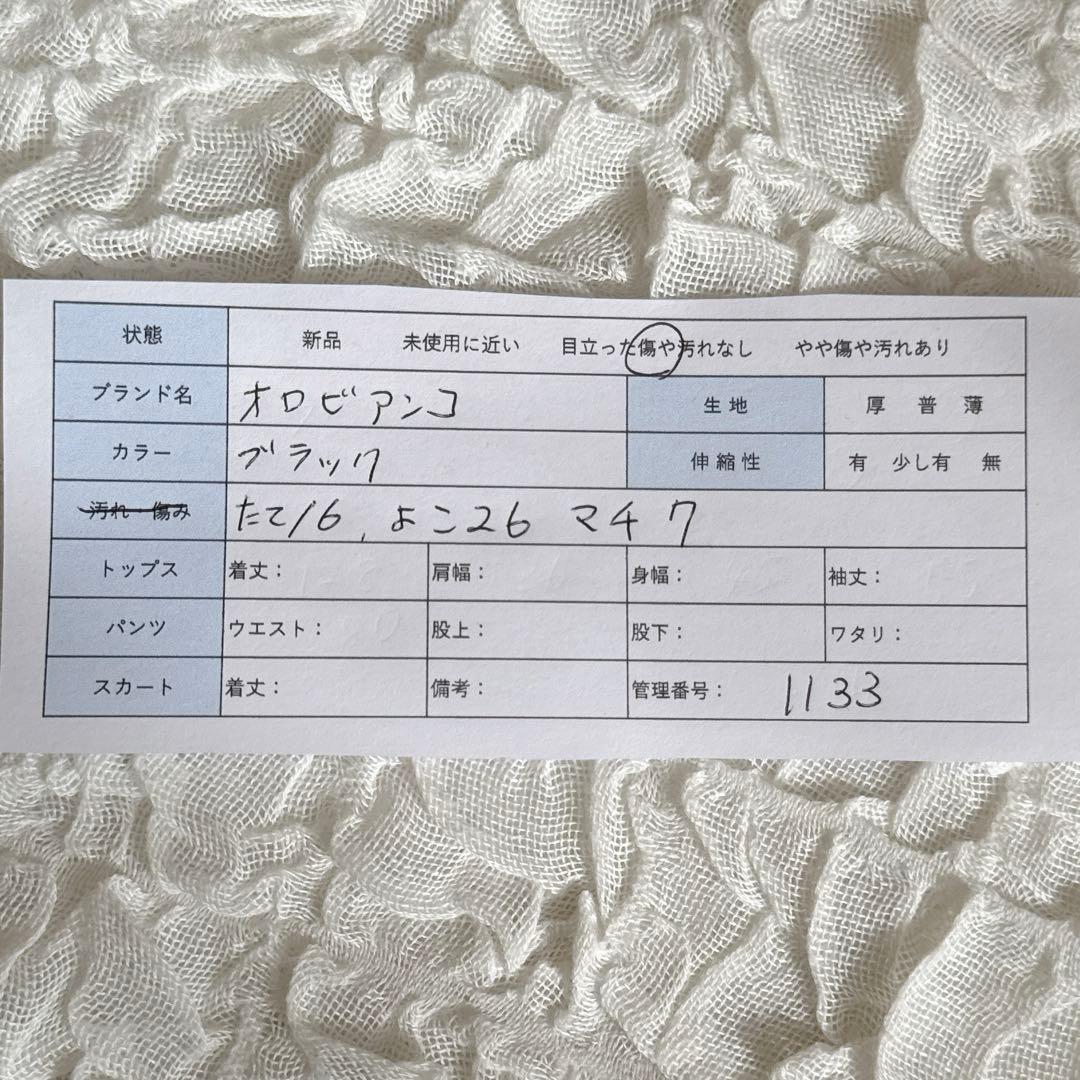 状態 新品 未使用に近い 目立った傷や汚れなし やや傷や汚れあり
ブランド名 オロビアンコ 生地 厚 普 薄
カラー ブラック 伸縮性 有 少し有 無
汚れ・傷み たて16, よこ26 マチ 7
トップス 着丈： 肩幅： 身幅： 袖丈：
パンツ ウエスト： 股上： 股下： ワタリ：
スカート 着丈： 備考： 管理番号： 1133